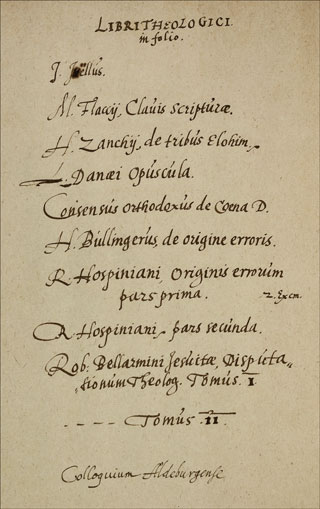 LIBRI THEOLOGICI.
in folio.
M. Flaccij, Clavis scripturæ.
H. Zanchij, de tribus Elohim,
L. Danæi Opuscula.
Consensus orthodoxus de Coena D.
H. Bullingerus, de origine erroris.
R. Hospiniani, Originis errorum
pars prima. 2. Exem.
R. Hospiniani, pars secunda.
Rob: Bellarmini Jesuitæ, Disputa„
„tionum Theolog. Tomus. I
---- Tomus. II
Colloquium Aldeburgense